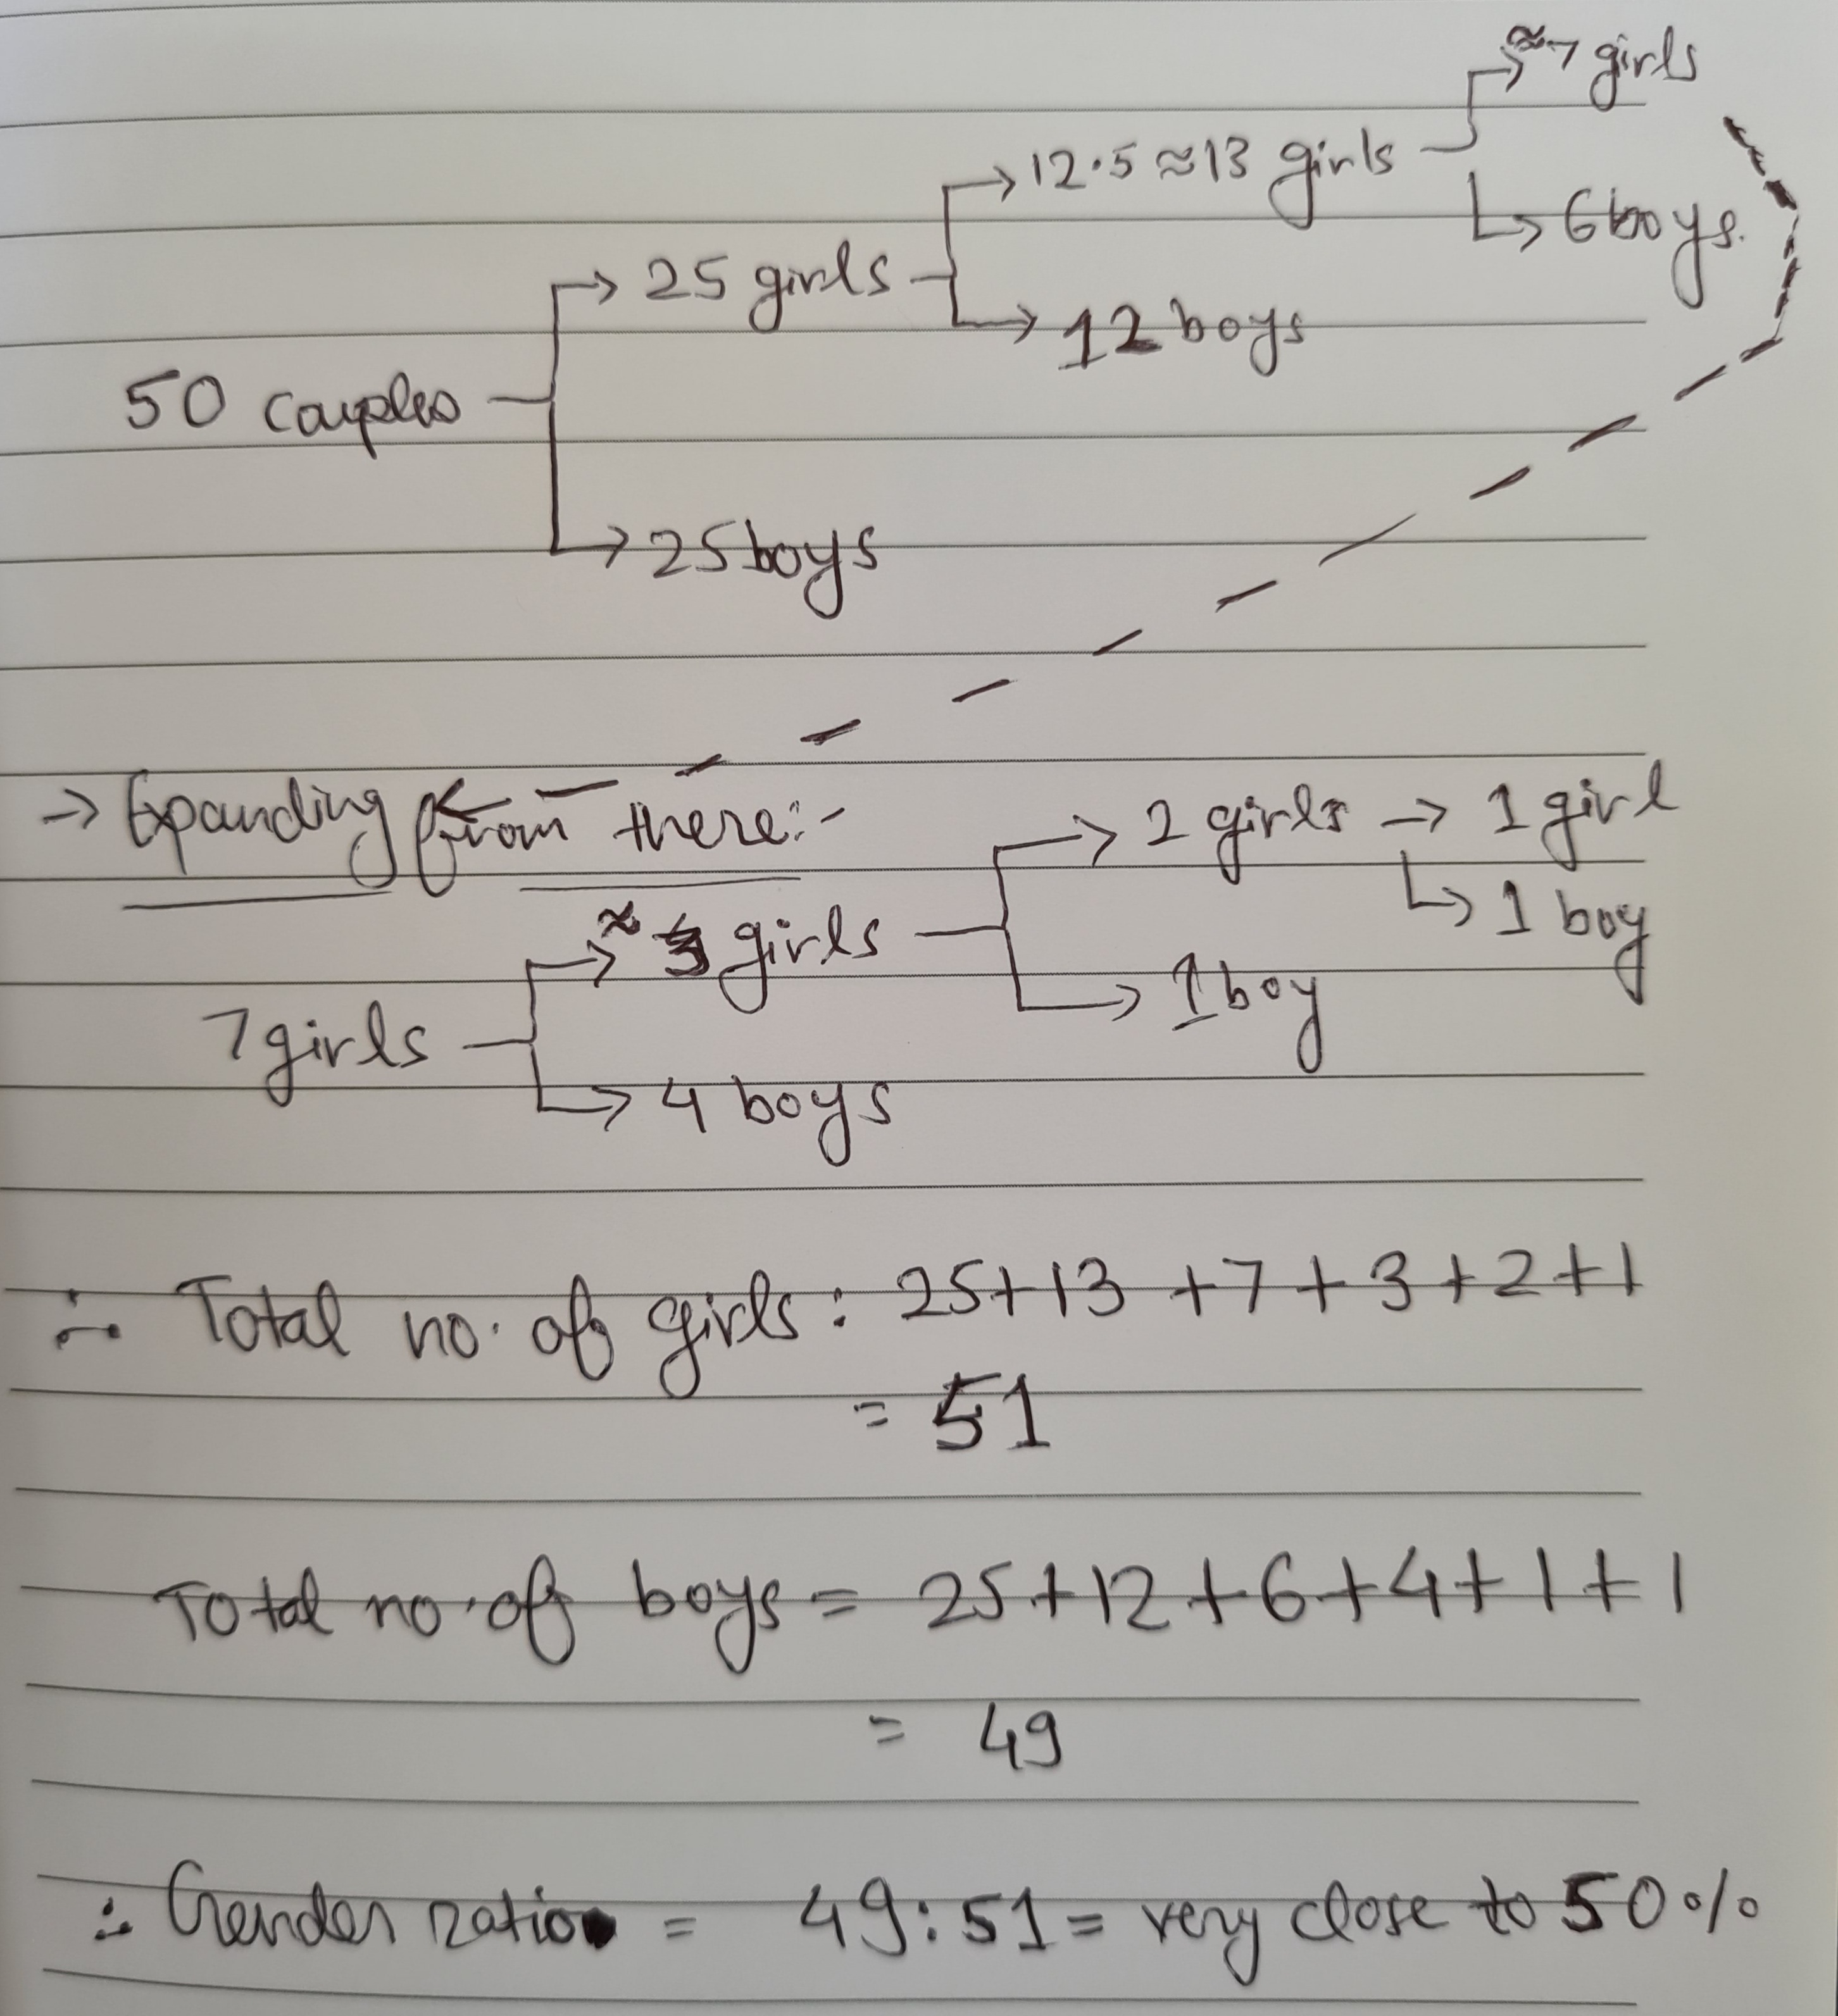 ≈7 girls
12.5 ≈13 girls
6 boys.
25 girls
12 boys
50 couples
25 boys
→ Expanding from there:-
2 girls → 1 girl
1 boy
≈ 3 girls
1 boy
7 girls
4 boys
∴ Total no. of girls : 25+13+7+3+2+1
= 51
Total no. of boys = 25+12+6+4+1+1
= 49
∴ Gender ratio = 49:51 = very close to 50%